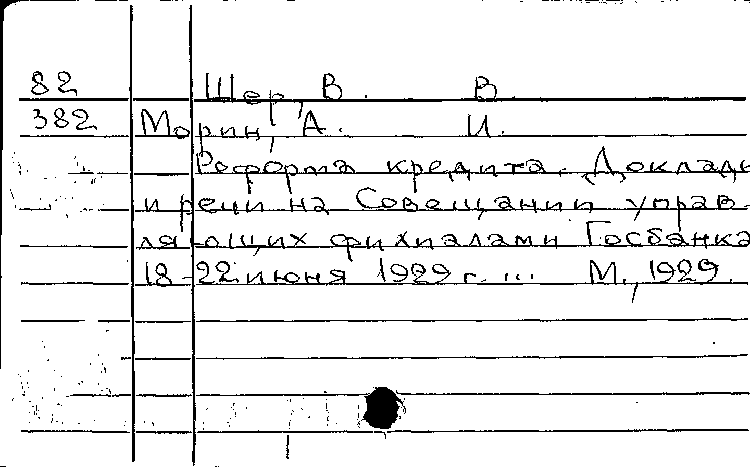 82 Шер, В. В.
382 Морин, А. И.
Реформа кредита. Доклады
и речи на Совещании управ-
ляющих филиалами Госбанка
18-22 июня 1929 г. ... М., 1929.